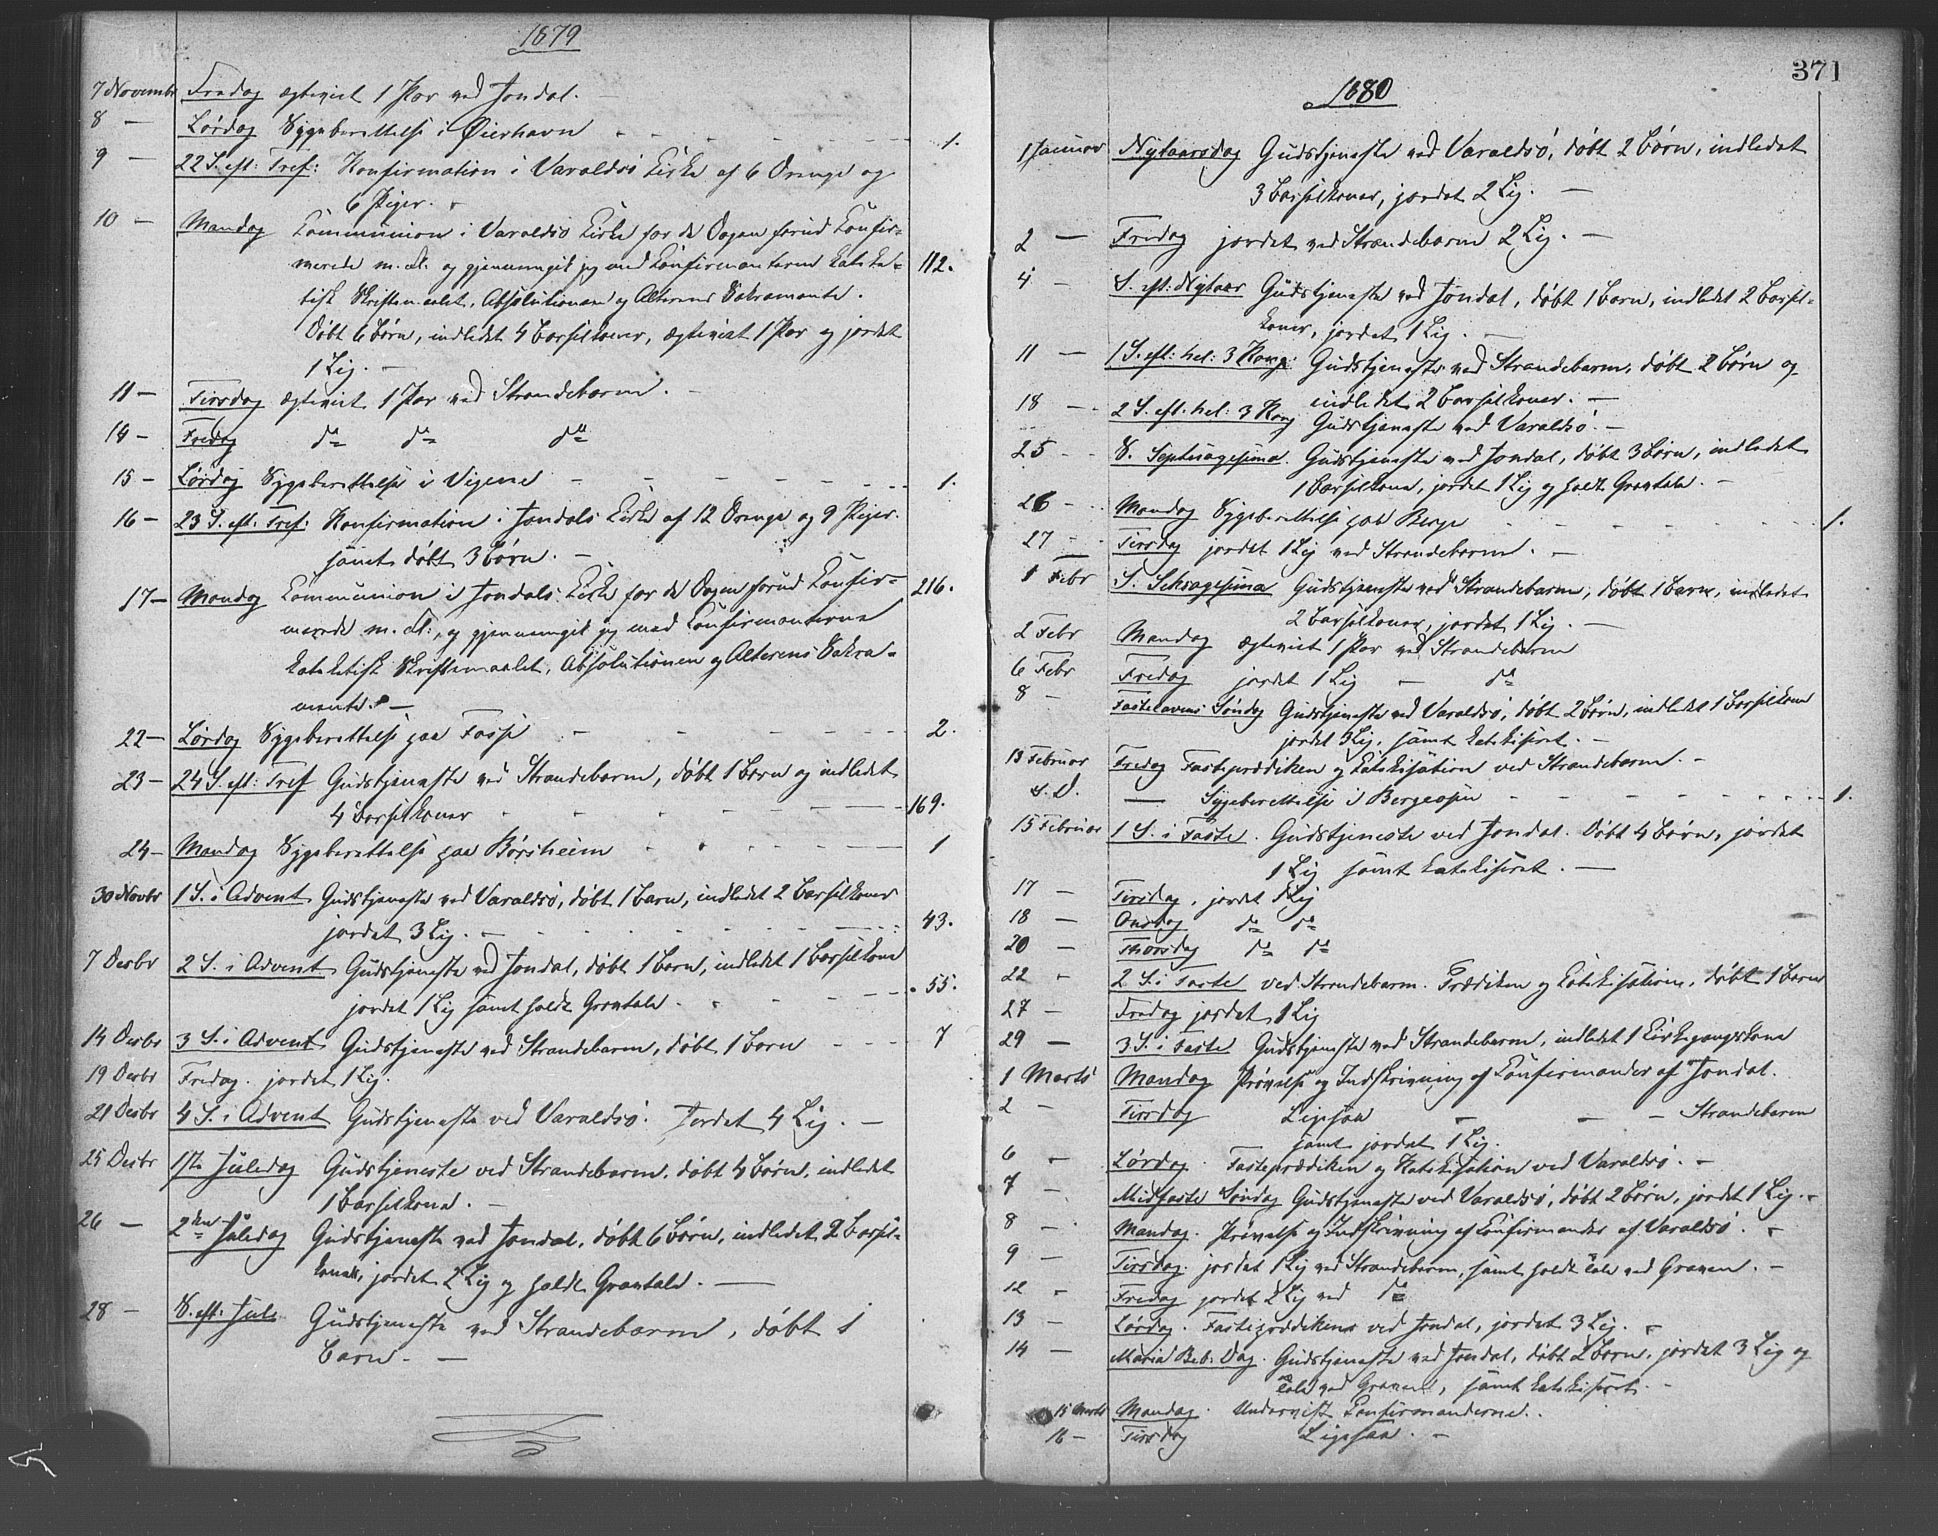 1879
7 Novembr Fredag ægteviet 1 Par ved Jondal.
8 — Lördag Sygeberettelse i Øierhavn 1.
9 — 22 S. eft: Tref: Konfirmation i Varaldsö Kirke af 6 Drenge og
6 Piger.
10 — Mandag Communion i Varaldsö Kirke for de Dagen forud Confir=
merede m. fl. og gjennemgik jeg med Confirmanterne kateke= 112.
tisk Skriftemaalet, Absolutionen og Alterens Sakramente.
Döbt 6 Börn, indledet 4 Barselkoner, ægteviet 1 Par og jordet
1 Lig. —
11 — Tirsdag ægteviet 1 Par ved Strandebarm. —
14 — Fredag do do do
15 — Lördag Sygeberettelse i Vigene 1.
16 — 23 S. eft: Tref: Konfirmation i Jondals Kirke af 12 Drenge og 9 Piger.
samt döbt 3 Börn. —
17 — Mandag Communion i Jondals Kirke for de Dagen forud Confir= 216.
merede m. fl., og gjennemgik jeg med Confirmanterne
kateketisk Skriftemaalet, Absolutionen og Alterens Sakra=
mente. —
22 — Lördag Sygeberettelse paa Fosse 2.
23 — 24 S. eft: Tref Gudstjeneste ved Strandebarm, döbt 1 Barn og indledet
4 Barselkoner 169.
24 — Mandag Sygeberettelse paa Börsheim 1
30 Novbr 1 S. i Advent Gudstjeneste ved Varaldsö, döbt 1 Barn, indledet 2 Barselkoner
jordet 3 Lig. — 43.
7 Desbr 2 S. i Advent Gudstjeneste ved Jondal, döbt 1 Barn, indledet 1 Barselkone
jordet 1 Lig samt holdt Gravtale. 55.
14 Desbr 3 S. i Advent Gudstjeneste ved Strandebarm, döbt 1 Barn 7
19 Desbr Fredag. jordet 1 Lig.
21 Desbr 4 S. i Advent Gudstjeneste ved Varaldsö. Jordet 4 Lig. —
25 Desbr 1ste Juledag Gudstjeneste ved Strandebarm. döbt 4 Börn, indledet
1 Barselkone. —
26 — 2den Juledag Gudstjeneste ved Jondal, döbt 6 Börn, indledet 2 Barsel=
koner, jordet 2 Lig og holdt Gravtale. —
28 — S. eft: Jul Gudstjeneste ved Strandebarm, döbt 1
Barn. —
371
1880
1 Januar Nytaarsdag Gudstjeneste ved Varaldsö, döbt 2 Börn, indledet
3 Barselkoner, jordet 2 Lig. —
2 — Fredag jordet ved Strandebarm 2 Lig. —
4 — S. eft: Nytaar Gudstjeneste ved Jondal, döbt 1 Barn, indledet 2 Barsel=
koner, jordet 1 Lig. —
11 — 1 S. eft: hel: 3 Kong. Gudstjeneste ved Strandebarm, döbt 2 Börn og
indledet 2 Barselkoner. —
18 — 2 S. eft. hel: 3 Kong Gudstjeneste ved Varaldsö. —
25 — S. Septuagesima. Gudstjeneste ved Jondal, döbt 3 Börn, indledet
1 Barselkone, jordet 1 Lig og holdt Gravtale. —
26 — Mandag Sygeberettelse paa Berge 1.
27 — Tirsdag jordet 1 Lig ved Strandebarm. —
1 Febr S. Seksagesima Gudstjeneste ved Strandebarm, döbt 1 Barn, indledet
2 Barselkoner, jordet 1 Lig. —
2 Febr Mandag ægteviet 1 Par ved Strandebarm
6 Febr Fredag jordet 1 Lig — do
8 — Fastelavens Söndag Gudstjeneste ved Varaldsö, döbt 2 Börn, indledet 1 Barselkone
jordet 3 Lig, samt katekiseret. —
13 Februar Fredag Fasteprædiken og Katekisation ved Strandebarm. —
s. D. — Sygeberettelse i Bergeosen 1.
15 Februar 1 S. i Faste. Gudstjeneste ved Jondal. Döbt 4 Börn, jordet
1 Lig samt katekiseret. —
17 — Tirsdag, jordet 1 Lig
18 — Onsdag do do
20 — Thorsdag do do
22 — 2 S. i Faste ved Strandebarm. Prædiken og Katekisation, döbt 1 Barn
27 — Fredag jordet 1 Lig
29 — 3 S. i Faste Gudstjeneste ved Strandebarm, indledet 1 Kirkegangskone
1 Marts Mandag Prövelse og Indskrivning af Confirmander af Jondal.
2 — Tirsdag Ligesaa — — — Strandebarm
samt jordet 1 Lig.
6 — Lördag. Fasteprædiken og Katekisation ved Varaldsö. —
7 — Midfaste Söndag Gudstjeneste ved Varaldsö, döbt 2 Börn, jordet 1 Lig. —
8 — Mandag. Prövelse og Indskrivning af Confirmander af Varaldsö.
9 — Tirsdag. jordet 1 Lig ved Strandebarm, samt holdt Tale ved Graven. —
12 — Fredag jordet 2 Lig ved do
13 — Lördag. Fasteprædiken ved Jondal, jordet 3 Lig. —
14 — Mariæ Beb. Dag. Gudstjeneste ved Jondal, döbt 2 Börn, jordet 3 Lig og
Tale ved Graven, samt katekiseret. —
15 Marts Mandag. Undervist Confirmanderne.
16 — Tirsdag Ligesaa. —